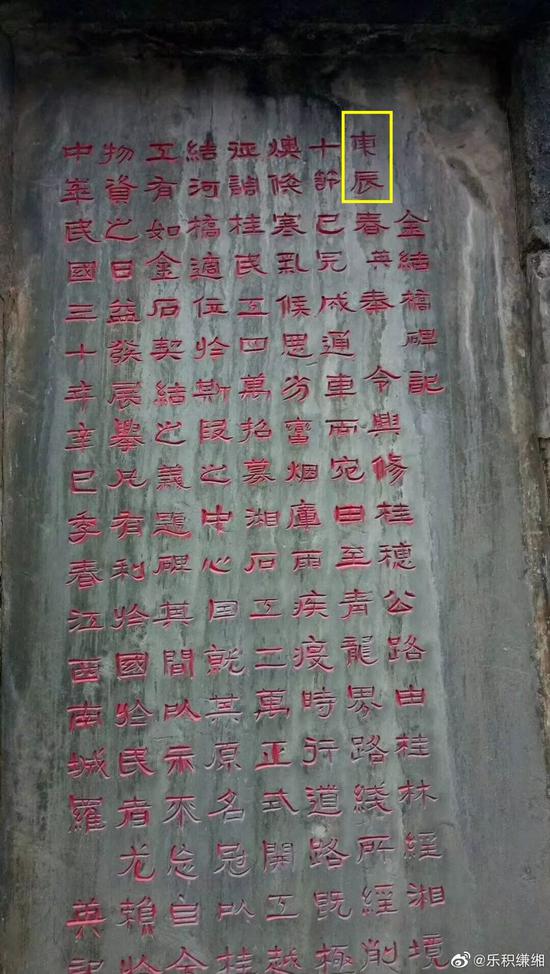 金結橋碑記
庚辰春英奉 令興修桂穗公路由桂林經湘境
十節已完成通車而宛田至青龍界路綫所經削
燠倏寒气候恶劣蛮烟瘴雨疾疫時行道路既極
征調桂民工四萬招募湘石工二萬正式開工越
結河橋適位於斯段之中心因就其原名冠以桂
互有如金石契結之義題碑其間以示不忘自全
物資之日益發展舉凡有利於國於民者尤賴於
中華民國三十年辛巳季春江西南城羅 英記
@乐积缣缃